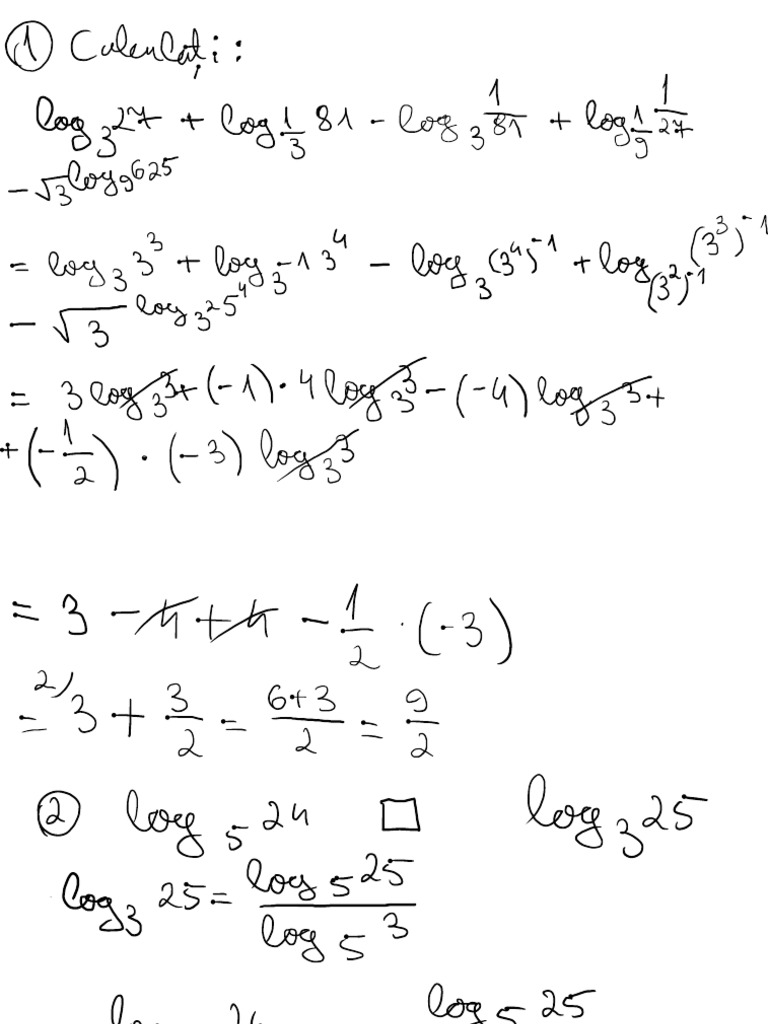 ① Calculați:
log₃27 + log_{1/3} 81 - log₃ 1/81 + log_{1/9} 1/27
- √3^{log₉ 625}
= log₃ 3³ + log_{3^{-1}} 3⁴ - log₃ (3⁴)^{-1} + log_{(3²)^{-1}} (3³)^{-1}
- √3^{log_{3²} 5⁴}
= 3 log₃ 3 + (-1) · 4 log₃ 3 - (-4) log₃ 3 +
+ (-1/2) · (-3) log₃ 3
= 3 - 4 + 4 - 1/2 · (-3)
= ²⁾3 + 3/2 = (6+3)/2 = 9/2
② log₅ 24 □ log₃ 25
log₃ 25 = log₅ 25 / log₅ 3
log₅ 25